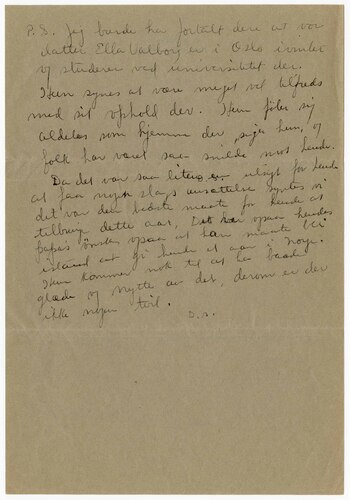 P.S. Jeg burde ha fortalt dere at vor
datter Ella Valborg er i Oslo i vinter
og studerer ved universitetet der.
Hun synes at være meget vel tilfreds
med sit ophold der. Hun føler sig
aldeles som hjemme der, siger hun, og
folk har været saa snilde mot hende.
Da det var saa liten utsigt for hende
at faa nogen slags ansættelse syntes vi
det var den bedste maate for hende at
tilbringe dette aar, Det har ogsaa hendes
papas ønske ogsaa at han maatte bli
istand at gi hende et aar i Norge.
Hun kommer nok til at ha baade
glæde og nytte av det, derom er der
ikke nogen tvil.
D.s.